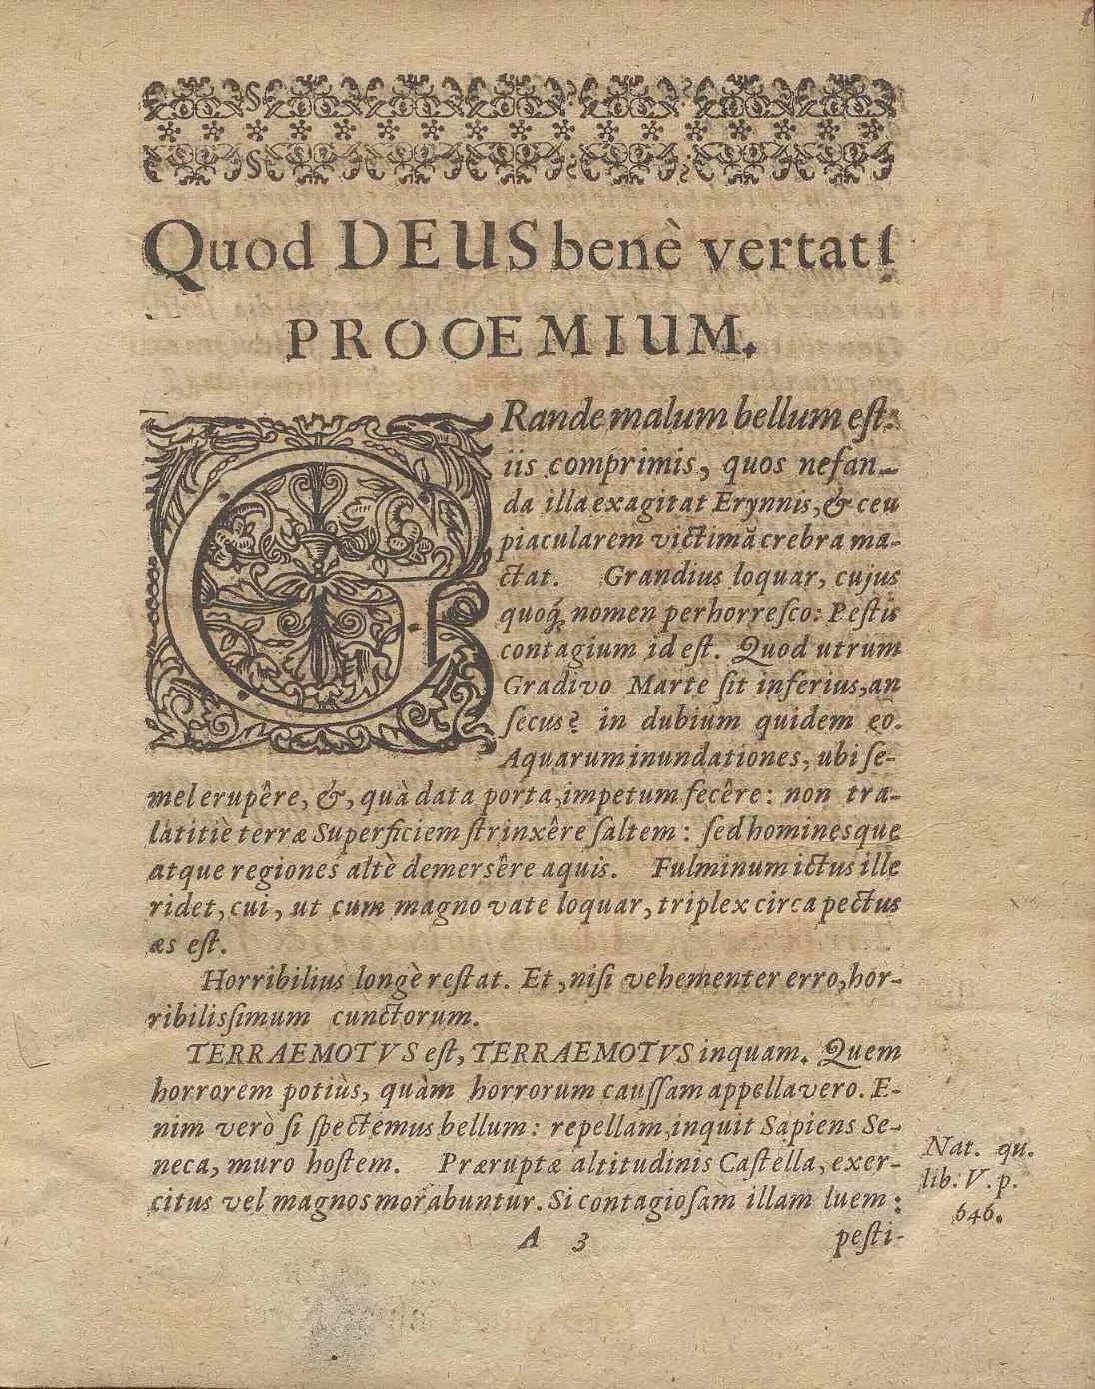 Quod DEUS benè vertat!
PROOEMIUM.
GRande malum bellum eſt:
iis comprimis, quos nefan-
da illa exagitat Erynnis, & ceu
piacularem victimā crebra ma-
ctat. Grandius loquar, cujus
quoq́; nomen perhorreſco: Peſtis
contagium id eſt. Quod utrum
Gradivo Marte ſit inferius, an
ſecus? in dubium quidem eo.
Aquarum inundationes, ubi ſe-
mel erupêre, &, quà data porta, impetum fecêre: non tra-
làtitiè terræ Superficiem ſtrinxêre ſaltem: ſed hominesque
atque regiones altè demersêre aquis. Fulminum ictus ille
ridet, cui, ut cum magno vate loquar, triplex circa pectus
æs eſt.
Horribilius longè reſtat. Et, niſi vehementer erro, hor-
ribilisſimum cunctorum.
TERRAEMOTVS eſt, TERRAEMOTVS inquam. Quem
horrorem potiùs, quàm horrorum cauſſam appellavero. E-
nim verò ſi ſpectemus bellum: repellam, inquit Sapiens Se-
neca, muro hoſtem. Præruptæ altitudinis Caſtella, exer-
citus vel magnos morabuntur. Si contagioſam illam luem:
Nat. qu.
lib. V. p.
646.
A 3
peſti-